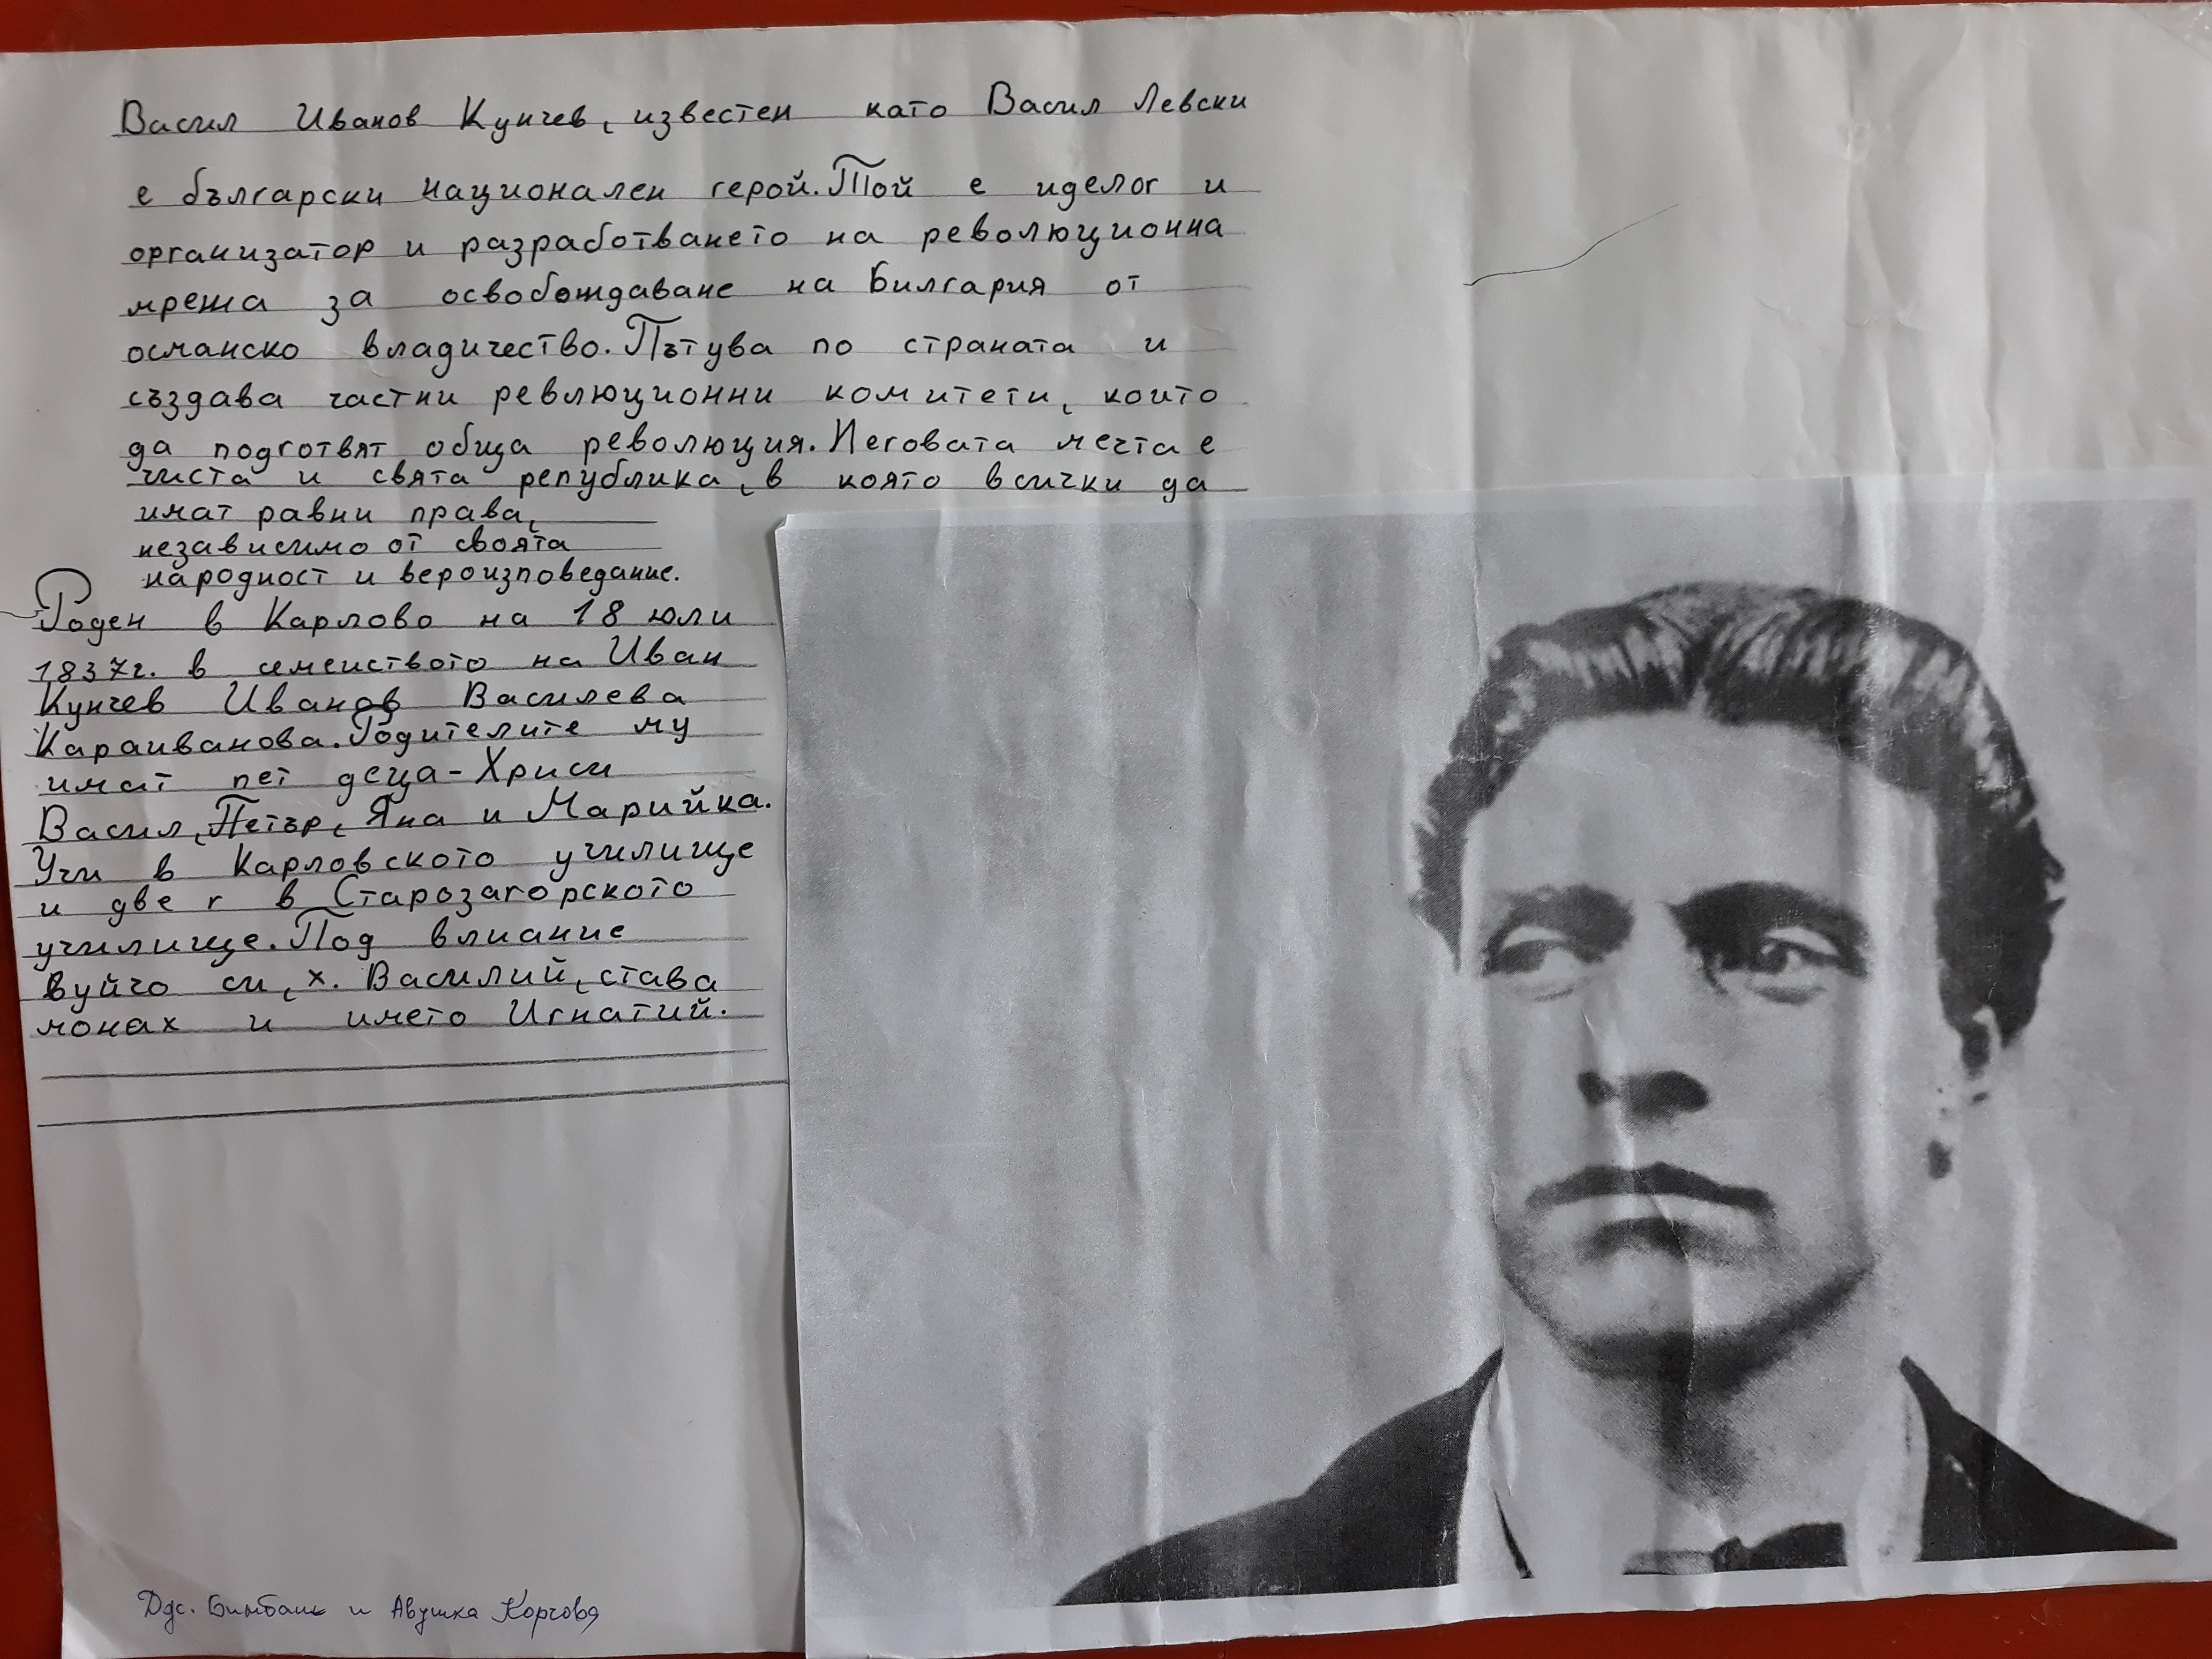 Васил Иванов Кунчев, известен като Васил Левски
е български национален герой. Той е иделог и
организатор и разработването на революционна
мрежа за освобождаване на Билгария от
османско владичество. Пътува по страната и
създава частниревлюционни комитети, които
да подготвят обща революция. Неговата мечта е
чиста и свята република, в която всички да
имат равни права,
независимо от своята
народност и вероизповедание.
Роден в Карлово на 18 юли
1837г. в семеиството на Иван
Кунчев Иванов Василева
Караиванова. Родителите му
имат пет деца - Хриси
Васил, Петър, Яна и Марийка.
Учи в Карловското училище
и две г в Старозагорското
училище. Под влиание
вуйчо си, х. Василий, става
монах и името Игнатий.
и Авушка Корчовя